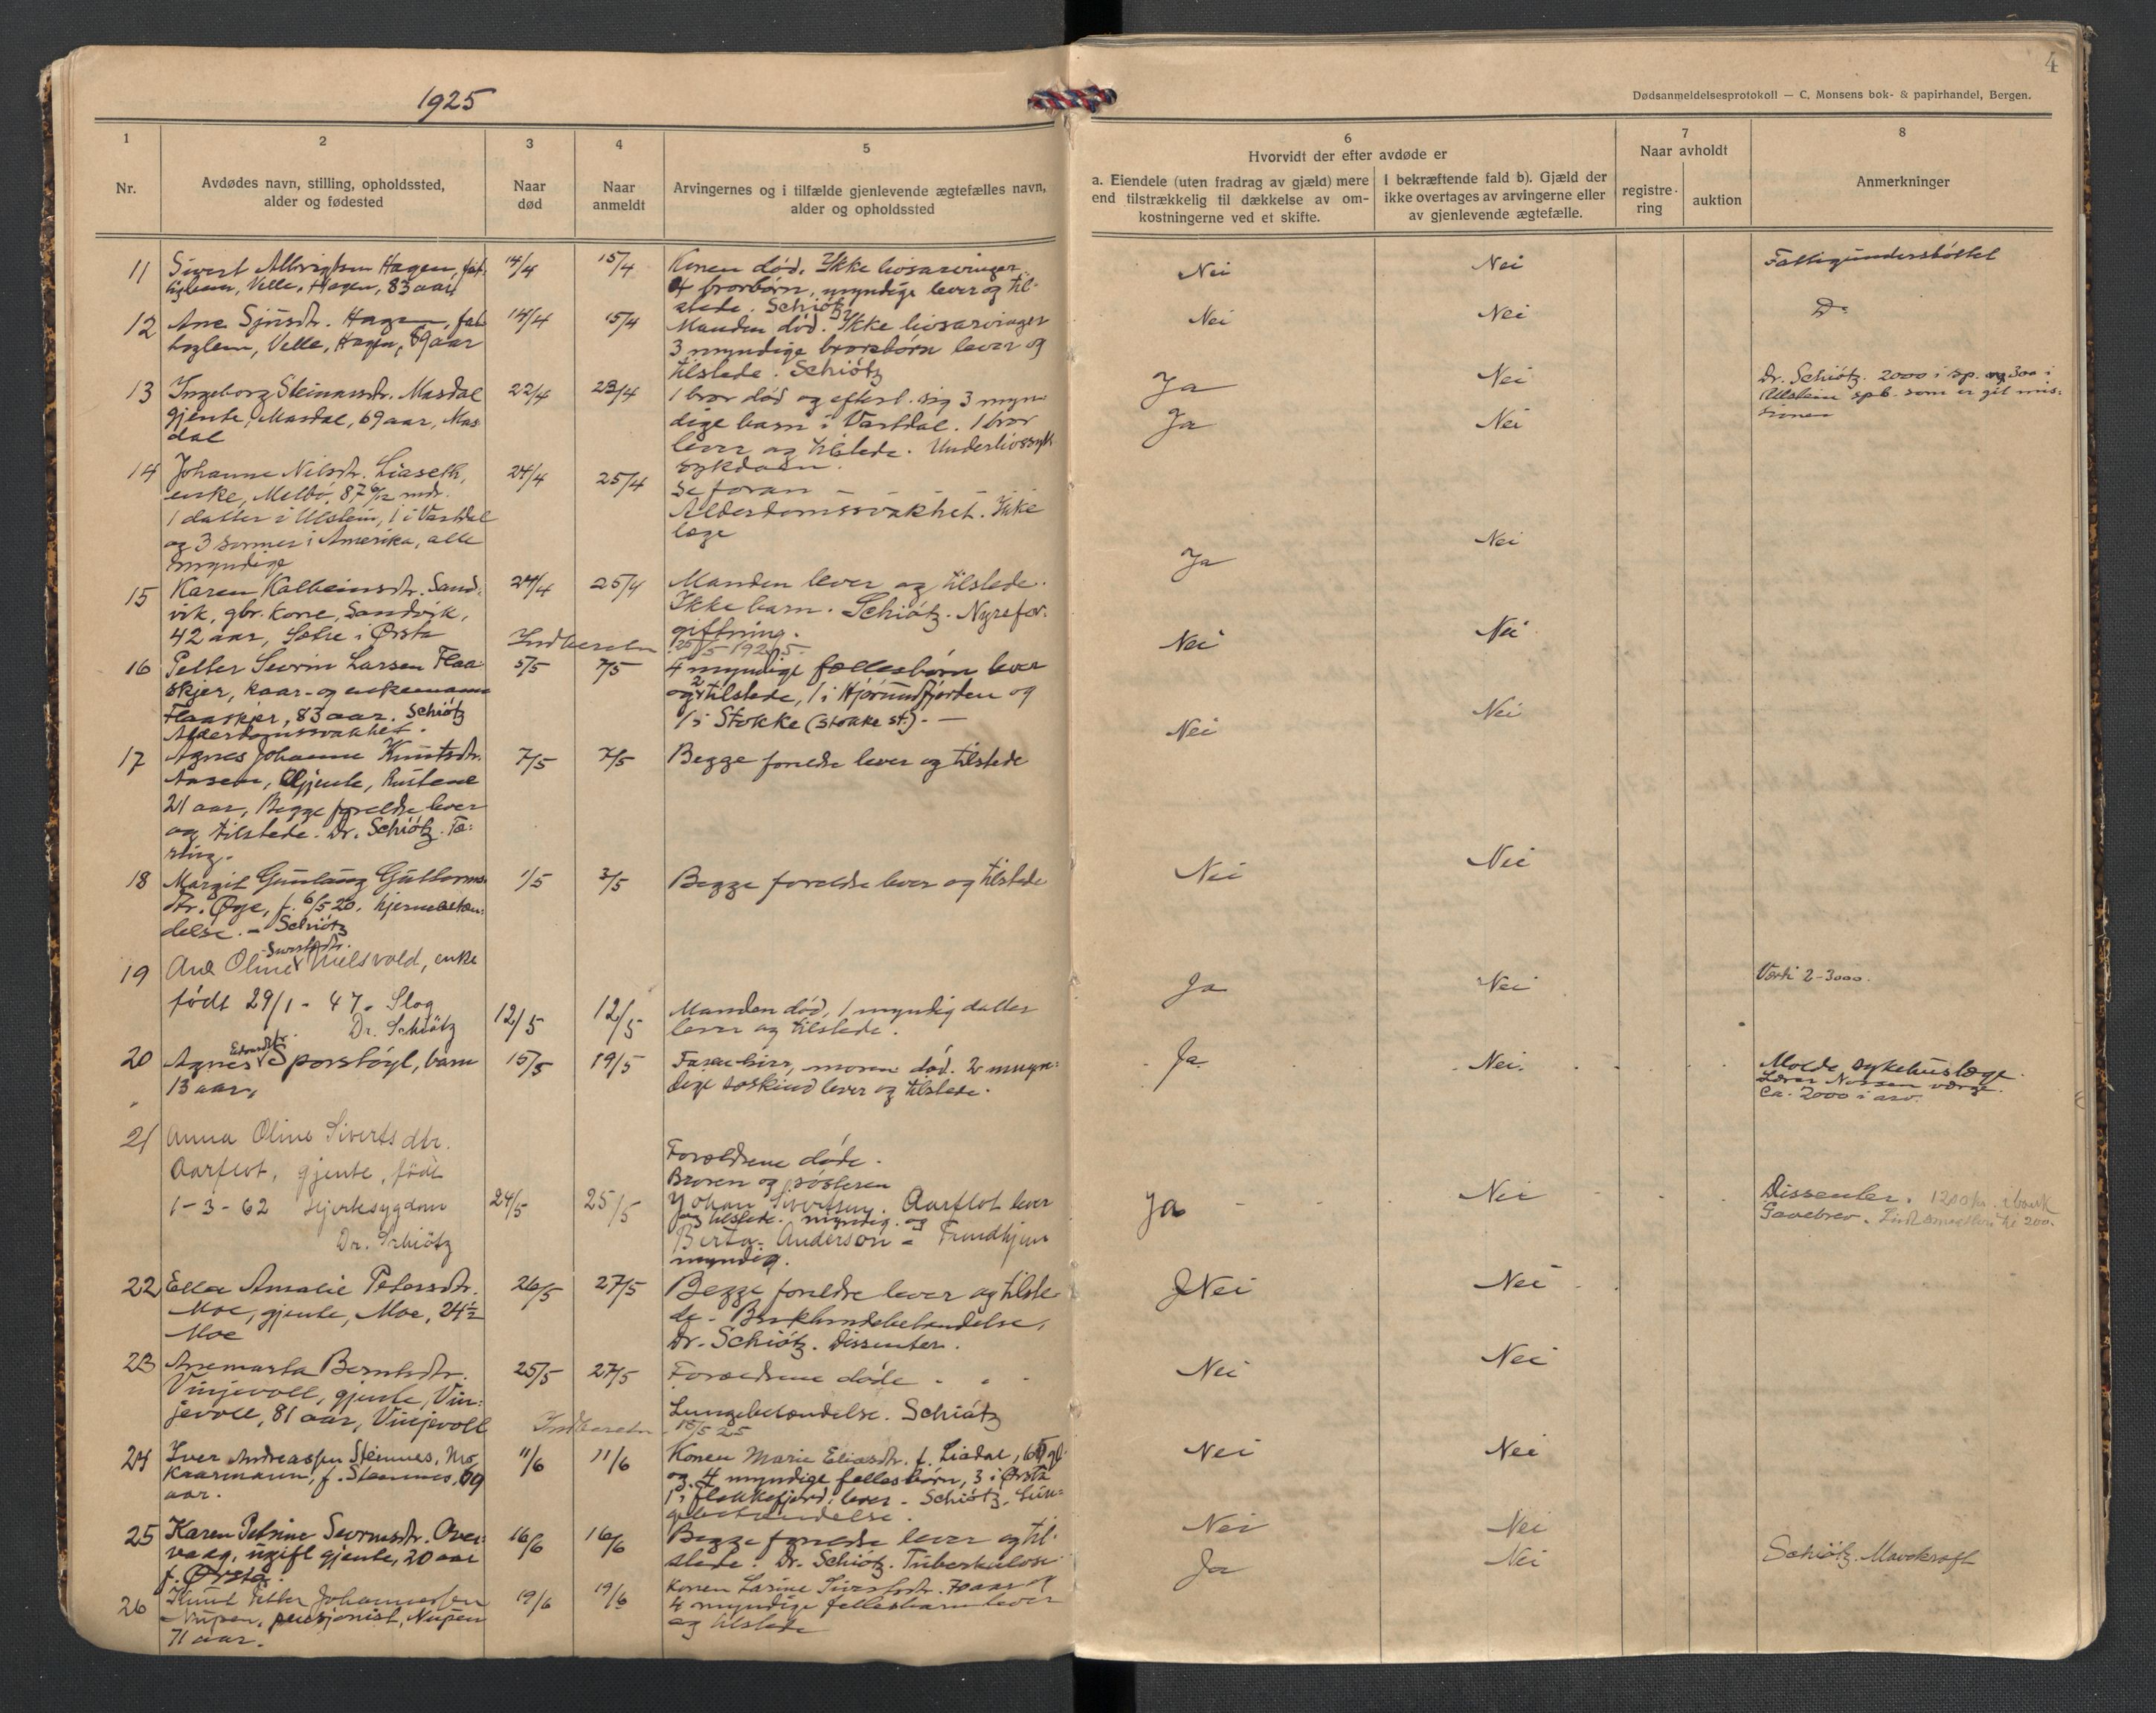 4
Dødsanmeldelsesprotokoll — C. Monsens bok- & papirhandel, Bergen.
1925
1
2
3
4
5
6
7
8
Nr.
Avdødes navn, stilling, opholdssted,
alder og fødested
Naar
død
Naar
anmeldt
Arvingernes og i tilfælde gjenlevende ægtefælles navn,
alder og opholdssted
Hvorvidt der efter avdøde er
a. Eiendele (uten fradrag av gjæld) mere
end tilstrækkelig til dækkelse av om-
kostningerne ved et skifte.
I bekræftende fald b). Gjæld der
ikke overtages av arvingerne eller
av gjenlevende ægtefælle.
Naar avholdt
registre-
ring
auktion
Anmerkninger
11 Sivert Hagen, fat-
tiglem, Velle, Hagen, 83 aar,
14/4 15/4
Konen død. Ikke livsarvinger
4 brorbørn, myndige lever og til-
stede. Schiötz
Nei Nei
Fattigunderstøttet
12 Ane Sjursdtr. Hagen, fat
tiglem, Velle, Hagen, 89 aar
14/4 15/4
Manden død. Ikke livsarvinger
3 myndige brorsbørn lever og
tilstede. Schiötz
Nei Nei
Do
13 Ingeborg Steinarsdtr. Masdal
gjente, Masdal, 69 aar, Mas
dal
22/4 23/4
1 bror død og efterl. sig 3 myn-
dige barn i Vartdal. 1 bror
lever og tilstede. Underlivssyk
sykdom.
Ja Nei
Dr. Schiötz. 2000 i sp. og 300 i
Ulstein spb. som er git mis-
sionen
14 Johanne Nilsdtr. Liaseth,
enke, Melbö, 87 6/12 mdr.
1 datter i Ulstein, 1 i Vartdal
og 3 sønner i Amerika, alle
myndige
24/4 25/4
Se foran — — —
Alderdomssvakhet. Ikke
læge
Ja Nei
15 Karen Kolbeinsdtr. Sand-
vik, gbr. kone, Sandvik,
42 aar, Sætre i Ørsta
24/4 25/4
Manden lever og tilstede.
Ikke barn. Schiötz. Nyrefor-
giftning.
Ja Nei
Indberetn 1925.
16 Petter Sevrin Larsen Flaa
skjer, kaar- og enkemann
Flaaskjer, 83 aar. Schiötz
Alderdomssvakhet.
5/5 7/5
4 myndige fællesbørn lever
og 2 tilstede, 1 i Hjørundfjorden og
1 i Stokke (Stokke st.). —
Nei Nei
17 Agnes Johanne Knutsdtr.
Aasen, gjente, Rustene
21 aar, Begge foreldre lever
og tilstede. Dr. Schiötz. Tæ-
ring.
7/5 7/5
Begge foreldre lever og tilstede
Nei Nei
18 Margit Gunlaug Guttorms-
dtr. Øye, f. 6/5 20. hjernebeten-
delse. - Schiötz
1/5 3/5
Begge foreldre lever og tilstede
Nei Nei
19 Ane Oline Sivertsdtr. Mielsvold, enke
født 29/1 - 47. Slag
Dr. Schiötz
12/5 12/5
Manden død, 1 myndig datter
lever og tilstede.
Ja Nei
Verdi 2-3000.
20 Agnes Edvardsdtr. Sporstøyl, barn
13 aar,
15/5 19/5
Faren her, moren død. 2 myn-
dige søskind lever og tilstede.
Ja Nei.
Molde sykehuslæge.
Lærer Nossen værge.
Ca. 2000 i arv.
21 Anna Oline Sivertsdtr.
Aarflot, gjente, født
1-3-62 Hjertesygdom
Dr. Schiötz
24/5 25/5
Forældrene døde.
Broren og søsteren
Johan Sivertsen Aarflot lever
og tilstede. myndig. og
Berta Anderson - Trondhjem
myndig.
Ja Nei
Dissenter. 1200 kr. i bank
Gavebrev.
22 Ella Amalie Petersdtr.
Moe, gjente, Moe, 24 1/2
Moe
26/5 27/5
Begge foreldre lever og tilste-
de - Bukhindebetendelse,
Dr. Schiötz. Dissenter.
Nei Nei
23 Anemarta Berntsdtr.
Vinjevoll, gjente, Vin-
jevoll, 81 aar, Vinjevoll
25/5 27/5
Forældrene døde - - -
Lungebetændelse. Schiötz
Nei Nei
Indberetn 25
24 Iver Andreassen Steinnes, Mo,
Kaarmann, f. Steinnes, 69
aar.
11/6 11/6
Konen Marie Eliasdtr. f. Liadal,
og 4 myndige fellesbørn, 3 i Ørsta
1 i Flekkefjord, lever - Schiötz. Lun-
gebetændelse.
Nei Nei
25 Karen Petrine Sevrinsdtr. Over-
vaag, ugift gjente, 20 aar
f. Ørsta.
16/6 16/6
Begge foreldre lever og til-
stede. Dr. Schiötz. Tuberkulose
Nei Nei
26 Knut Petter Johannessen
Nupen, pensjonist, Nupen
71 aar.
19/6 19/6
Konen Larine Sivertsdtr. 70 aar og
4 myndige fellesbarn lever
og tilstede
Ja Nei
Schiötz. Mavekræft